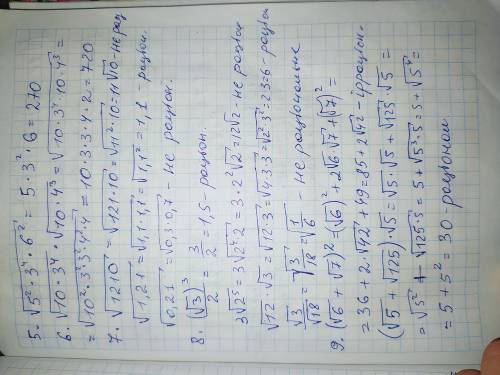 5. √5²·3⁴·6² = 5·3²·6 = 270
6. √10·3⁴ · √10·4³ = √10·3⁴·10·4³ =
= √10²·3²·3²·4²·4 = 10·3·3·4·2 = 720
7. √1210 = √121·10 = √11²·10 = 11√10 - не рац
√1,21 = √1,1·1,1 = √1,1² = 1,1 - рацион.
√0,21 = √0,3·0,7 - не рацион.
8. (√3)³/2 = 3/2 = 1,5 - рацион.
3√2⁵ = 3√2⁴·2 = 3·2²√2 = 12√2 - не рацион
√12·√3 = √12·3 = √4·3·3 = √2²·3² = 2·3 = 6 - рацион
√3/√18 = √3/18 = √1/6 - не рациональные
9. (√6 + √7)² = (√6)² + 2√6·√7 + (√7)² =
= 36 + 2·√42 + 49 = 85 + 2√42 - иррацион.
(√5 + √125)·√5 = √5·√5 + √125·√5 =
= √5² + √125·5 = 5 + √5³·5 = 5 + √5⁴ =
= 5 + 5² = 30 - рационал